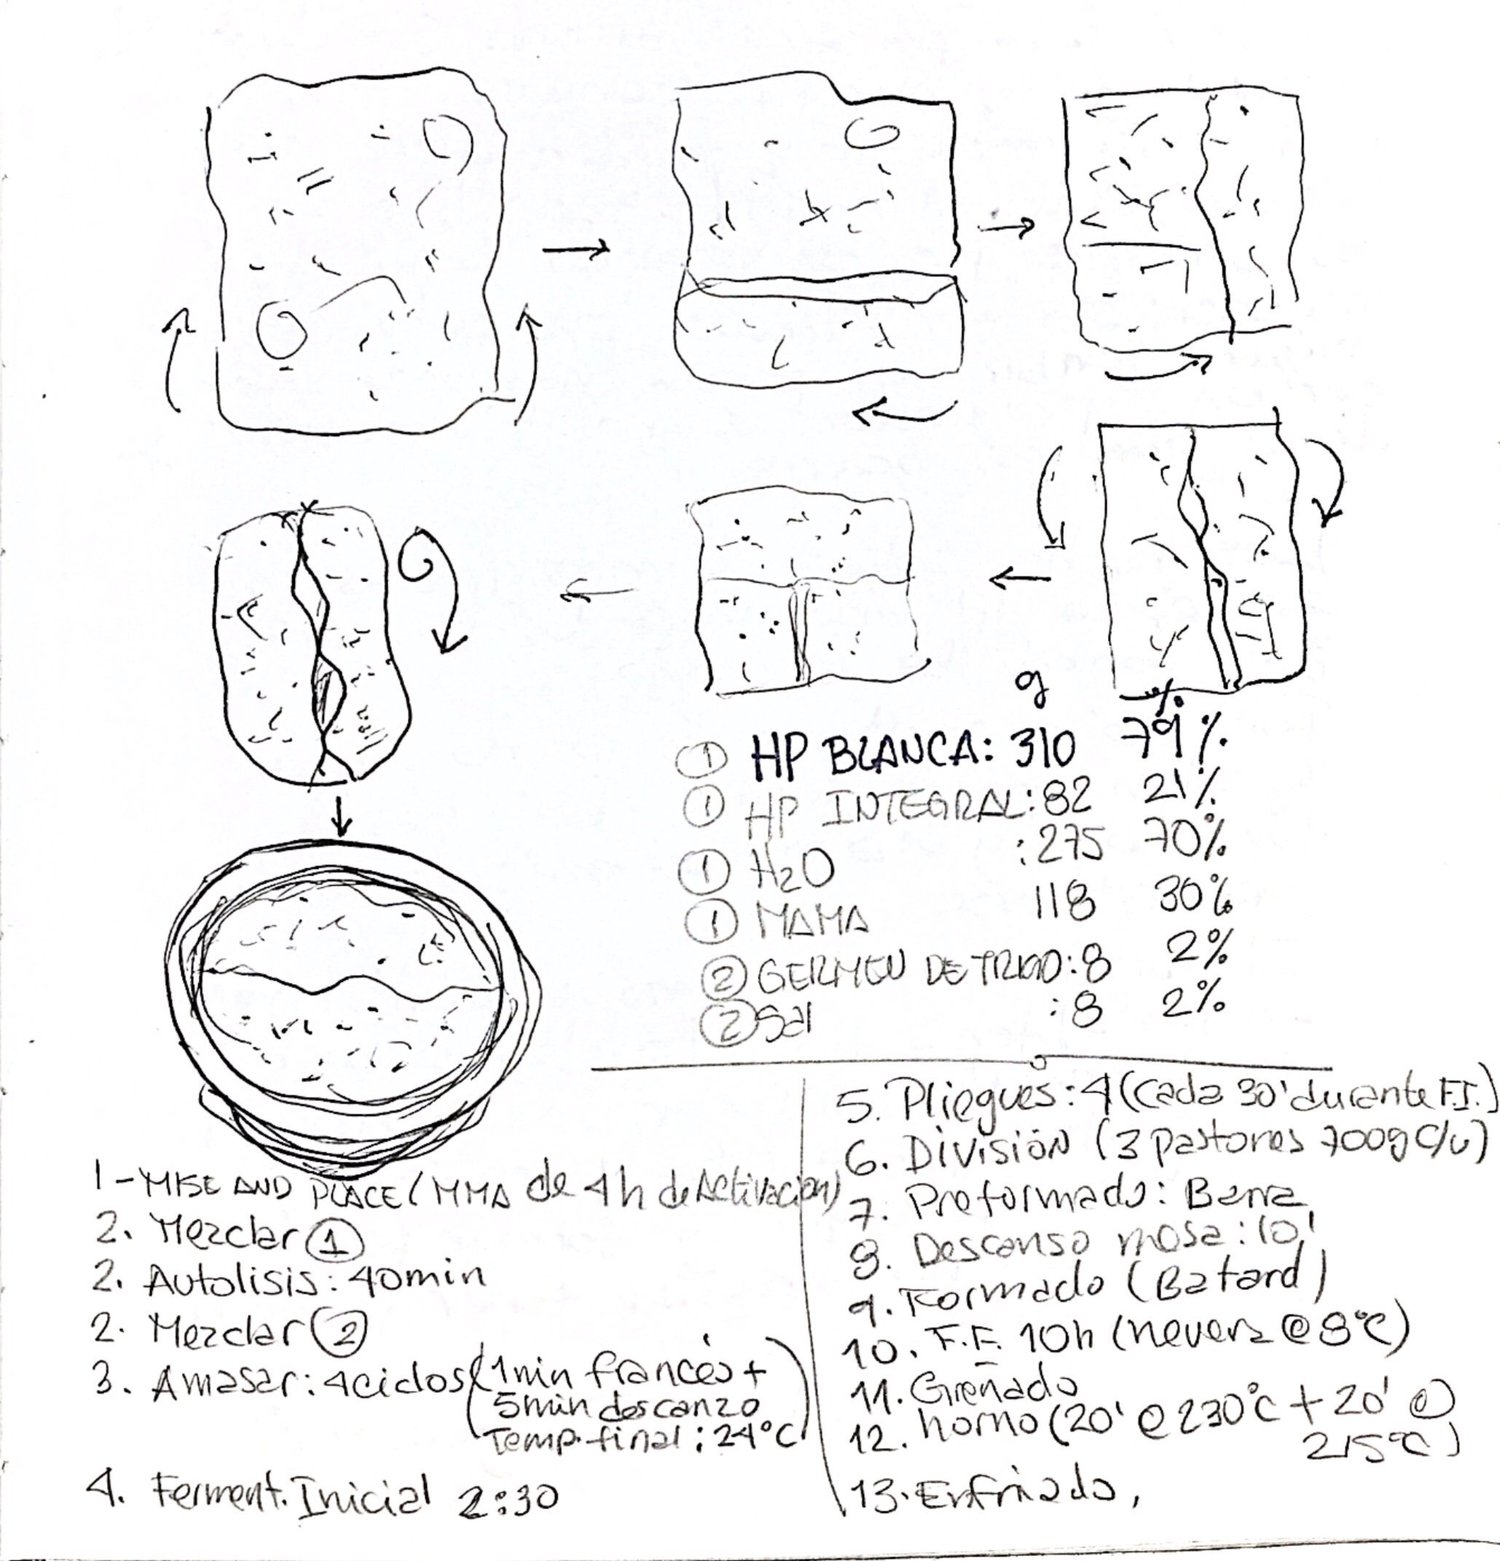 g %
① HP BLANCA: 310 79%
① HP INTEGRAL: 82 21%
① H2O : 275 70%
① MAMA 118 30%
② GERMEN DE TRIGO: 8 2%
② Sal : 8 2%
1-MISE AND PLACE (MMA de 4h de Activacion)
2. Mezclar ①
2. Autolisis: 40min
2. Mezclar ②
3. Amasar: 4ciclos (1min francés +
5min descanzo
Temp. final: 24°C)
4. Ferment. Inicial 2:30
5. Pliegues: 4 (Cada 30' durante F.I.)
6. División (3 pastones 700g c/u)
7. Preformado: Barra
8. Descanso mesa: 10'
9. Formado (Batard)
10. F.F. 10h (nevera @ 8°C)
11. Greñado
12. horno (20' @ 230°C + 20' @
215°C)
13. Enfriado,